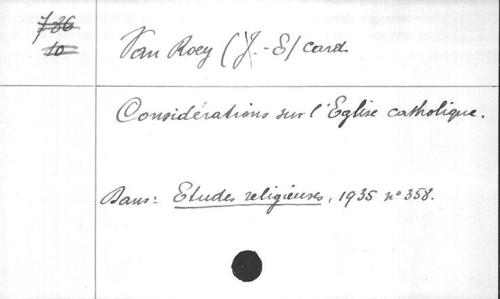 786
10
Van Roey (J.-E) card.
Considérations sur l'Eglise catholique.
Dans: Etudes religieuses, 1935 n° 358.